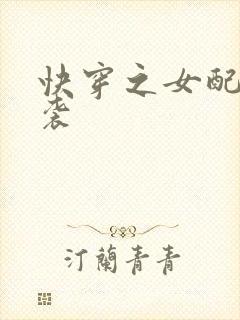 快穿之女配
袭
汀蘭青青